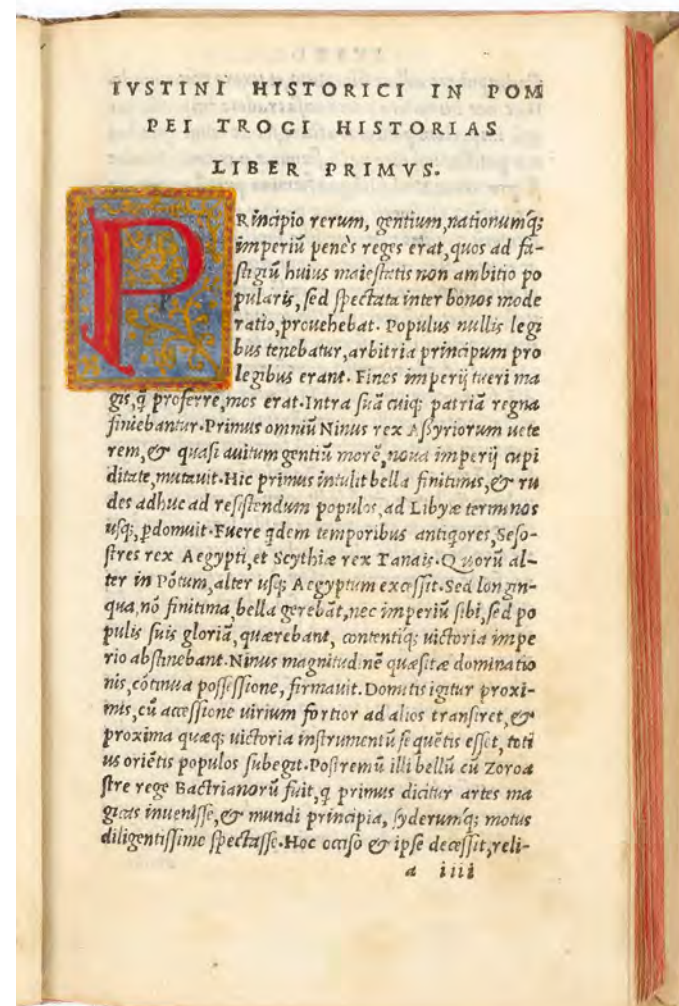 IVSTINI HISTORICI IN POM
PEI TROGI HISTORIAS
LIBER PRIMVS.
PRincipio rerum, gentium, nationumq;
imperiũ penès reges erat, quos ad fa-
stigiũ huius maiestatis non ambitio po
pularis, sed spectata inter bonos mode
ratio, prouehebat. Populus nullis legi
bus tenebatur, arbitria principum pro
legibus erant. Fines imperij tueri ma
gis, q̃ proferre, mos erat. Intra suã cuiq; patriã regna
finiebantur. Primus omniũ Ninus rex Assyriorum uete
rem, & quasi auitum gentiũ morẽ, noua imperij cupi
ditate, mutauit. Hic primus intulit bella finitimis, & ru
des adhuc ad resistendum populos, ad Libyæ terminos
usq;, ꝑdomuit. Fuere qdem temporibus antiqores, Seso-
stres rex Aegypti, et Scythiæ rex Tanais. Quorũ al-
ter in Põtum, alter usq; Aegyptum excessit. Sed longin-
qua, nõ finitima, bella gerebãt, nec imperiũ sibi, sed po
pulis suis gloriã, quærebant, contentiq; uictoria impe
rio abstinebant. Ninus magnitudinẽ quæsitæ dominatio
nis, cõtinua possessione, firmauit. Domitis igitur proxi-
mis, cũ accessione uirium fortior ad alios transiret, &
proxima quæq; uictoria instrumentũ sequẽtis esset, toti
us oriẽtis populos subegit. Postremũ illi bellũ cũ Zoroa
stre rege Bactrianorũ fuit, q primus dicitur artes ma
gicas inuenisse, & mundi principia, syderumq; motus
diligentissime spectasse. Hoc occiso & ipse decessit, reli-
a iiii